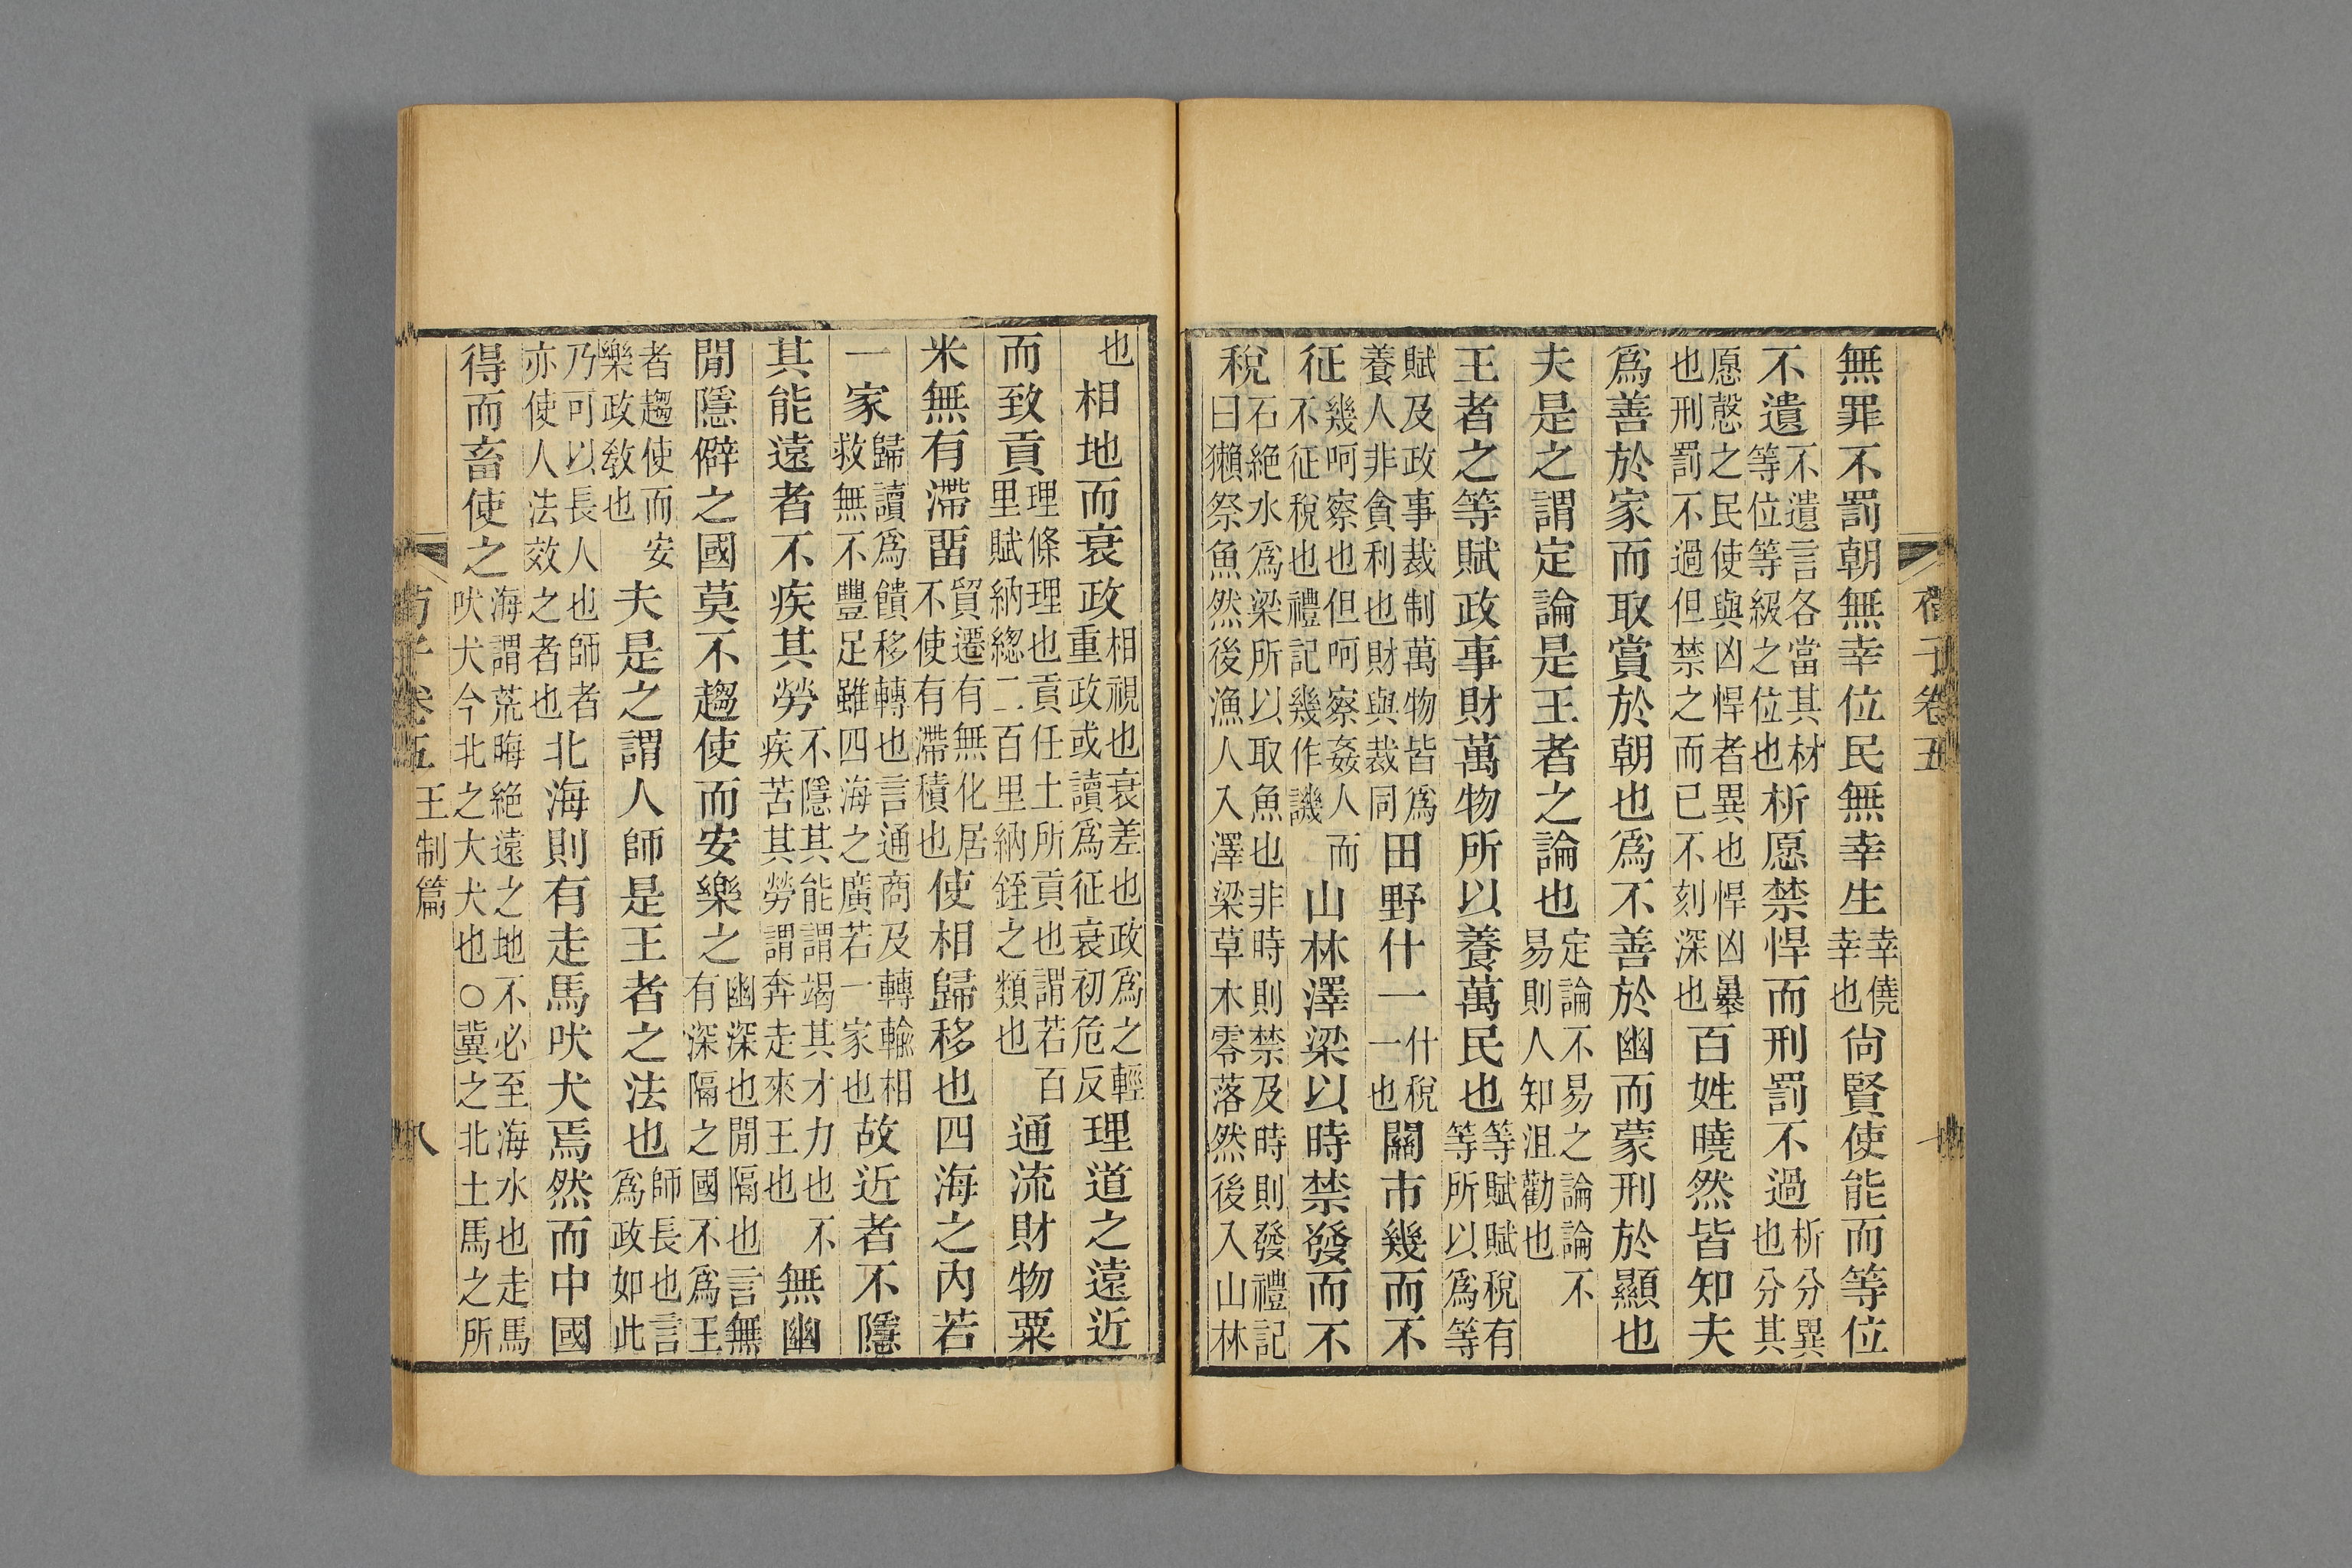 荀子卷五
無罪不罰朝無幸位民無幸生幸僥幸也尙賢使能而等位
不遺不遺言各當其材等位等級之位也析愿禁悍而刑罰不過析分異也分其
愿慤之民使與凶悍者異也悍凶暴也刑罰不過但禁之而已不刻深也百姓曉然皆知夫
爲善於家而取賞於朝也爲不善於幽而蒙刑於顯也
夫是之謂定論是王者之論也定論不易之論論不易則人知沮勸也
王者之等賦政事財萬物所以養萬民也等賦賦稅有等所以爲等
賦及政事裁制萬物皆爲養人非貪利也財與裁同田野什一什稅一也關市幾而不
征幾呵察也但呵察姦人而不征稅也禮記幾作譏山林澤梁以時禁發而不
稅石絕水爲梁所以取魚也非時則禁及時則發禮記曰獺祭魚然後漁人入澤梁草木零落然後入山林
也相地而衰政相視也衰差也政爲之輕重政或讀爲征衰初危反理道之遠近
而致貢理條理也貢任土所貢也謂若百里賦納總二百里納銍之類也通流財物粟
米無有滯畱貿遷有無化居不使有滯積也使相歸移也四海之內若
一家歸讀爲饋移轉也言通商及轉輸相救無不豐足雖四海之廣若一家也故近者不隱
其能遠者不疾其勞不隱其能謂竭其才力也不疾苦其勞謂奔走來王也無幽
閒隱僻之國莫不趨使而安樂之幽深也閒隔也言無有深隔之國不爲王
者趨使而安樂政敎也夫是之謂人師是王者之法也師長也言爲政如此
乃可以長人也師者亦使人法效之者也北海則有走馬吠犬焉然而中國
得而畜使之海謂荒晦絕遠之地不必至海水也走馬吠犬今北之大犬也○冀之北土馬之所
荀子卷五 王制篇 八